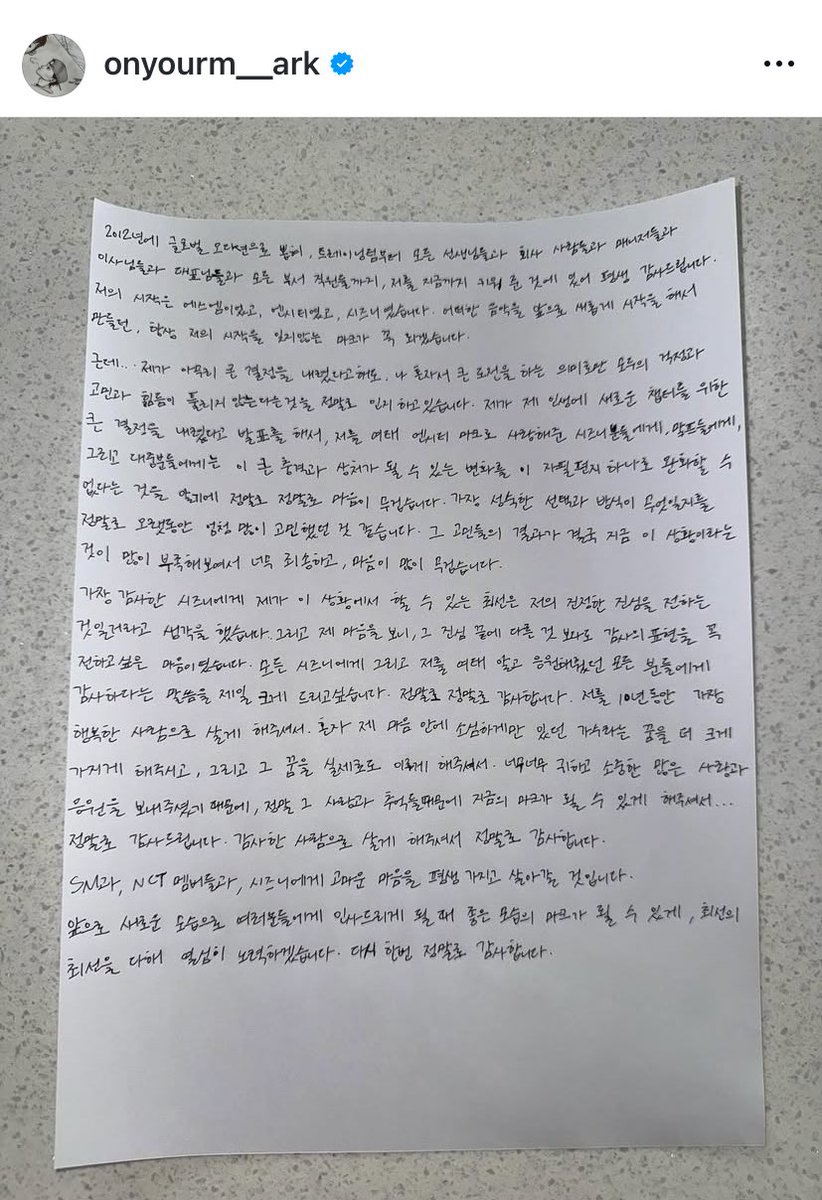 onyourm__ark
2012년에 글로벌 오디션으로 뽑혀, 트레이닝팀부터 모든 선생님들과 회사 사람들과 매니저들과
이사님들과 대표님들과 모든 부서 직원들까지, 저를 지금까지 키워 준 것에 있어 평생 감사드립니다.
저의 시작은 에스엠이었고, 엔시티였고, 시즈니였습니다. 어떠한 음악을 앞으로 새롭게 시작을 해서
만들던, 항상 저의 시작을 잊지않는 마크가 꼭 되겠습니다.
근데... 제가 아무리 큰 결정을 내렸다고해도, 나 혼자서 큰 도전을 하는 의미로만 모두의 걱정과
고민과 힘듦이 풀리지 않는다는것을 정말로 인지하고있습니다. 제가 제 인생에 새로운 챕터를 위한
큰 결정을 내렸다고 발표를 해서, 저를 여태 엔시티 마크로 사랑해준 시즈니분들에게, 막프들에게,
그리고 대중분들에게는 이 큰 충격과 상처가 될 수 있는 변화를 이 자필편지 하나로 완화할 수
없다는 것을 알기에 정말로 정말로 마음이 무겁습니다. 가장 성숙한 선택과 방식이 무엇일지를
정말로 오랫동안 엄청 많이 고민했던 것 같습니다. 그 고민들의 결과가 결국 지금 이 상황이라는
것이 많이 부족해보여서 너무 죄송하고, 마음이 많이 무겁습니다.
가장 감사한 시즈니에게 제가 이 상황에서 할 수 있는 최선은 저의 진정한 진심을 전하는
것일거라고 생각을 했습니다. 그리고 제 마음을 보니, 그 진심 끝에 다른 것 보다로 감사의 표현을 꼭
전하고싶은 마음이였습니다. 모든 시즈니에게 그리고 저를 여태 알고 응원해줬던 모든 분들에게
감사하다는 말씀을 제일 크게 드리고싶습니다. 정말로 정말로 감사합니다. 저를 10년동안 가장
행복한 사람으로 살게 해주셔서. 혼자 제 마음 안에 소심하게만 있던 가수라는 꿈을 더 크게
가지게 해주시고, 그리고 그 꿈을 실제로도 이루게 해주셔서. 너무너무 귀하고 소중한 많은 사랑과
응원을 보내주셨기 때문에, 정말 그 사랑과 추억들때문에 지금의 마크가 될 수 있게 해주셔서...
정말로 감사드립니다. 감사한 사람으로 살게 해주셔서 정말로 감사합니다.
SM과, NCT 멤버들과, 시즈니에게 고마운 마음을 평생 가지고 살아갈 것입니다.
앞으로 새로운 모습으로 여러분들에게 인사드리게 될 때 좋은 모습의 마크가 될 수 있게, 최선의
최선을 다해 열심히 노력하겠습니다. 다시 한번 정말로 감사합니다.